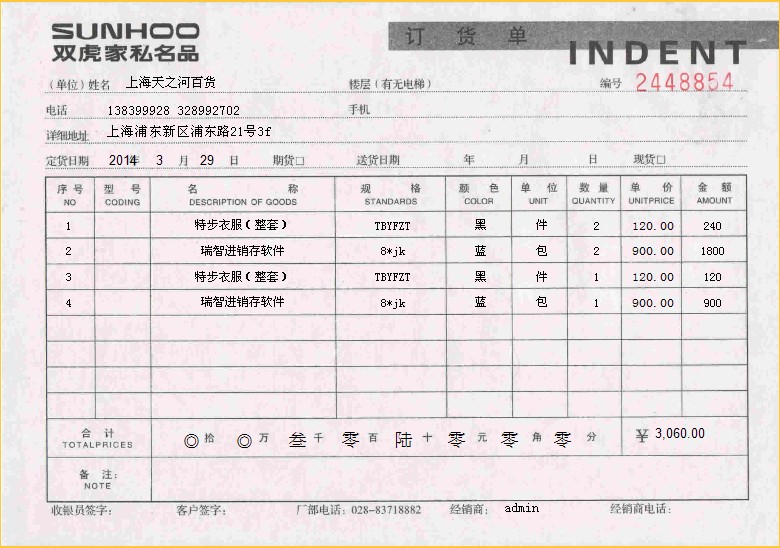 SUNHOO 订 货 单
双虎家私名品 INDENT
(单位)姓名 上海天之河百货 楼层(有无电梯) 编号 2448854
电话 138399928 328992702 手机
详细地址 上海浦东新区浦东路21号3f
定货日期 2014年 3 月 29 日 期货□ 送货日期 年 月 日 现货□
序 号 型 号 名 称 规 格 颜 色 单 位 数 量 单 价 金 额
NO CODING DESCRIPTION OF GOODS STANDARDS COLOR UNIT QUANTITY UNITPRICE AMOUNT
1 特步衣服(整套) TBYFZT 黑 件 2 120.00 240
2 瑞智进销存软件 8*jk 蓝 包 2 900.00 1800
3 特步衣服(整套) TBYFZT 黑 件 1 120.00 120
4 瑞智进销存软件 8*jk 蓝 包 1 900.00 900
合 计 ◎ 拾 ◎ 万 叁 千 零 百 陆 十 零 元 零 角 零 分 ¥ 3,060.00
TOTALPRICES
备 注:
NOTE
收银员签字: 客户签字: 厂部电话:028-83718882 经销商: admin 经销商电话: